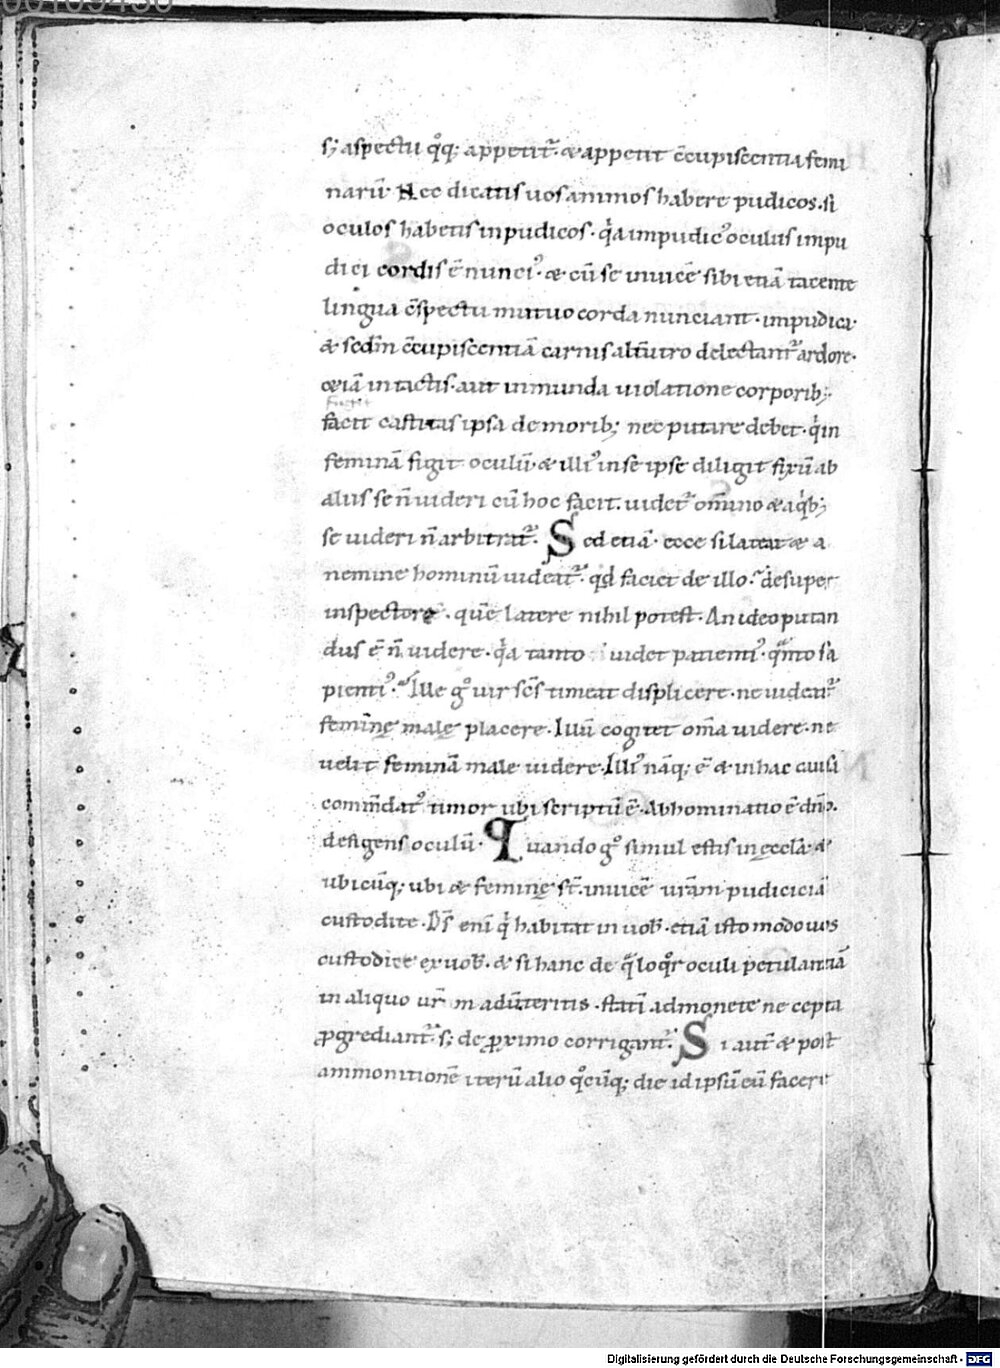 00109430
s; aspectu q̊q; appetit᷑ · & appetit c̄cupiscentia femi
narū. Nec dicatis uos animos habere pudicos. si
oculos habetis inpudicos · q̓a impudic᷒ oculus impu
dici cordis ē nunci᷒. & cū se inuicē sibi etiā tacente
lingua c̄spectu mutuo corda nunciant · impudica
& scdm̄ c̄cupiscentiā carnis alt̄utro delectant᷑ ardore ·
&iā intactis · aut inmunda uiolatione corporib;
Fugit
facit castitas ipsa de morib; nec putare debet · q̓ in
feminā figit oculū & illi᷒ in se ipse diligit fixū ab
aliis se ñ uideri cū hoc facit. uidet᷑ om̄ino & a q̓b;
se uideri ñ arbitrat᷑. Sed etiā · ecce si lateat & a
nemine hominū uideat᷑ · qd̄ faciet de illo desuper
inspectore · quē latere nihil potest. An ideo putan
dus ē ñ uidere · q̓a tanto uidet patienti᷒ · q̄nto sa
pienti᷒. Ille g̊ uir sc̄s timeat displicere · ne uideat᷑
feminę male placere. Illū cogitet om̄a uidere · ne
uelit feminā male uidere. Illi᷒ nāq; ē & in hac causa
com̄ndat᷒ timor ubi scriptū ē · Abhominatio ē dn̄o
defigens oculū. Quando g̊ simul estis in ęccl̄a &
ubicūq; ubi & feminę st̄. inuicē ur̄am pudiciciā
custodite. Ds̄ eni̅ q̓ habitat in uob̄. etiā isto modo uos
custodiet ex uob̄. & si hanc de q̄ loq̊r oculi petulantiā
in aliquo ur̄m aduerteritis · statī admonete ne cepta
ꝓgrediant᷑. s; de ꝓximo corrigant᷑. Si aut̄ & post
ammonitionē iterū alio q̊cūq; die id ipsū eū facere
Digitalisierung gefördert durch die Deutsche Forschungsgemeinschaft - DFG